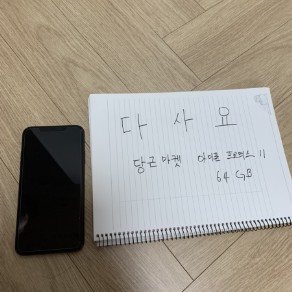 다 사 요
당근 마켓 아이폰 프로맥스 11
64 GB